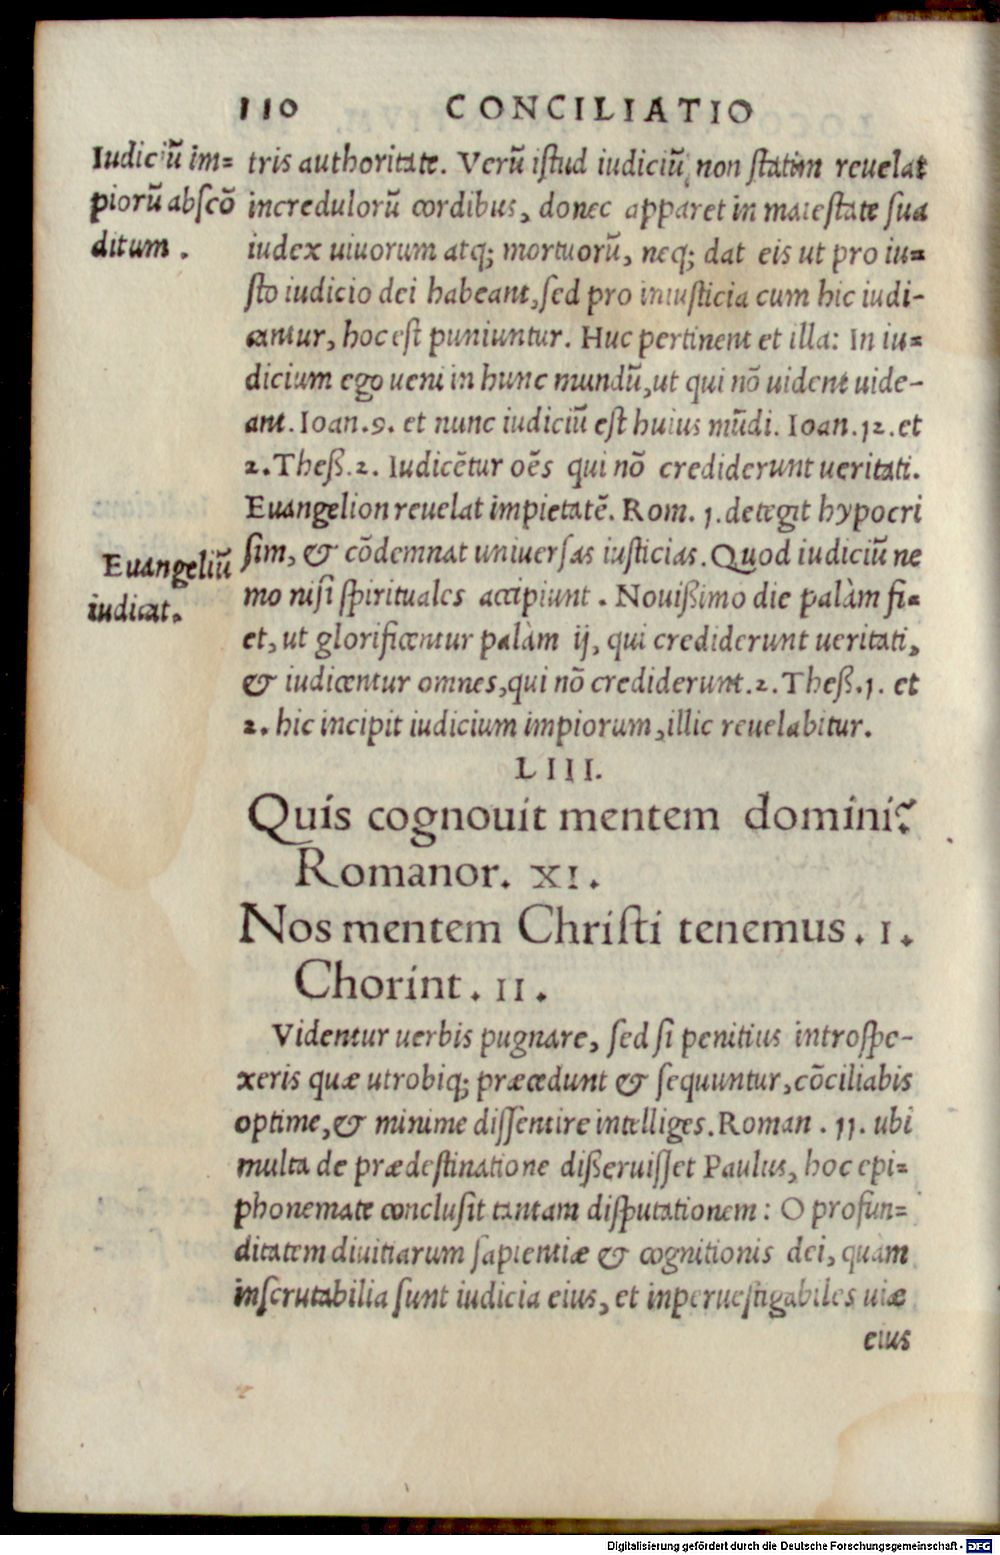 110 CONCILIATIO
Iudiciũ im=
piorũ abscõ
ditum.
tris authoritate. Verũ istud iudiciũ non statim reuelat
incredulorũ cordibus, donec apparet in maiestate sua
iudex uiuorum atq; mortuorũ, neq; dat eis ut pro iu=
sto iudicio dei habeant, sed pro iniusticia cum hic iudi-
cantur, hoc est puniuntur. Huc pertinent et illa: In iu=
dicium ego ueni in hunc mundũ, ut qui nõ uident uide-
ant. Ioan.9. et nunc iudiciũ est huius mũdi. Ioan.12. et
2. Theß.2. Iudicẽtur oẽs qui nõ crediderunt ueritati.
Euangelion reuelat impietatẽ. Rom. 1. detegit hypocri
Euangeliũ
iudicat.
sim, & cõdemnat uniuersas iusticias. Quod iudiciũ ne
mo nisi spirituales accipiunt. Nouißimo die palàm fi=
et, ut glorificentur palàm ij, qui crediderunt ueritati,
& iudicentur omnes, qui nõ crediderunt. 2. Theß.1. et
2. hic incipit iudicium impiorum, illic reuelabitur.
LIII.
Quis cognouit mentem domini?
Romanor. XI.
Nos mentem Christi tenemus. I.
Chorint. II.
Videntur uerbis pugnare, sed si penitius introspe-
xeris quæ utrobiq; præcedunt & sequuntur, cõciliabis
optime, & minime dissentire intelliges. Roman. 11. ubi
multa de prædestinatione dißeruisset Paulus, hoc epi=
phonemate conclusit tantam disputationem: O profun=
ditatem diuitiarum sapientiæ & cognitionis dei, quàm
inscrutabilia sunt iudicia eius, et inperuestigabiles uiæ
eius
Digitalisierung gefördert durch die Deutsche Forschungsgemeinschaft - DFG